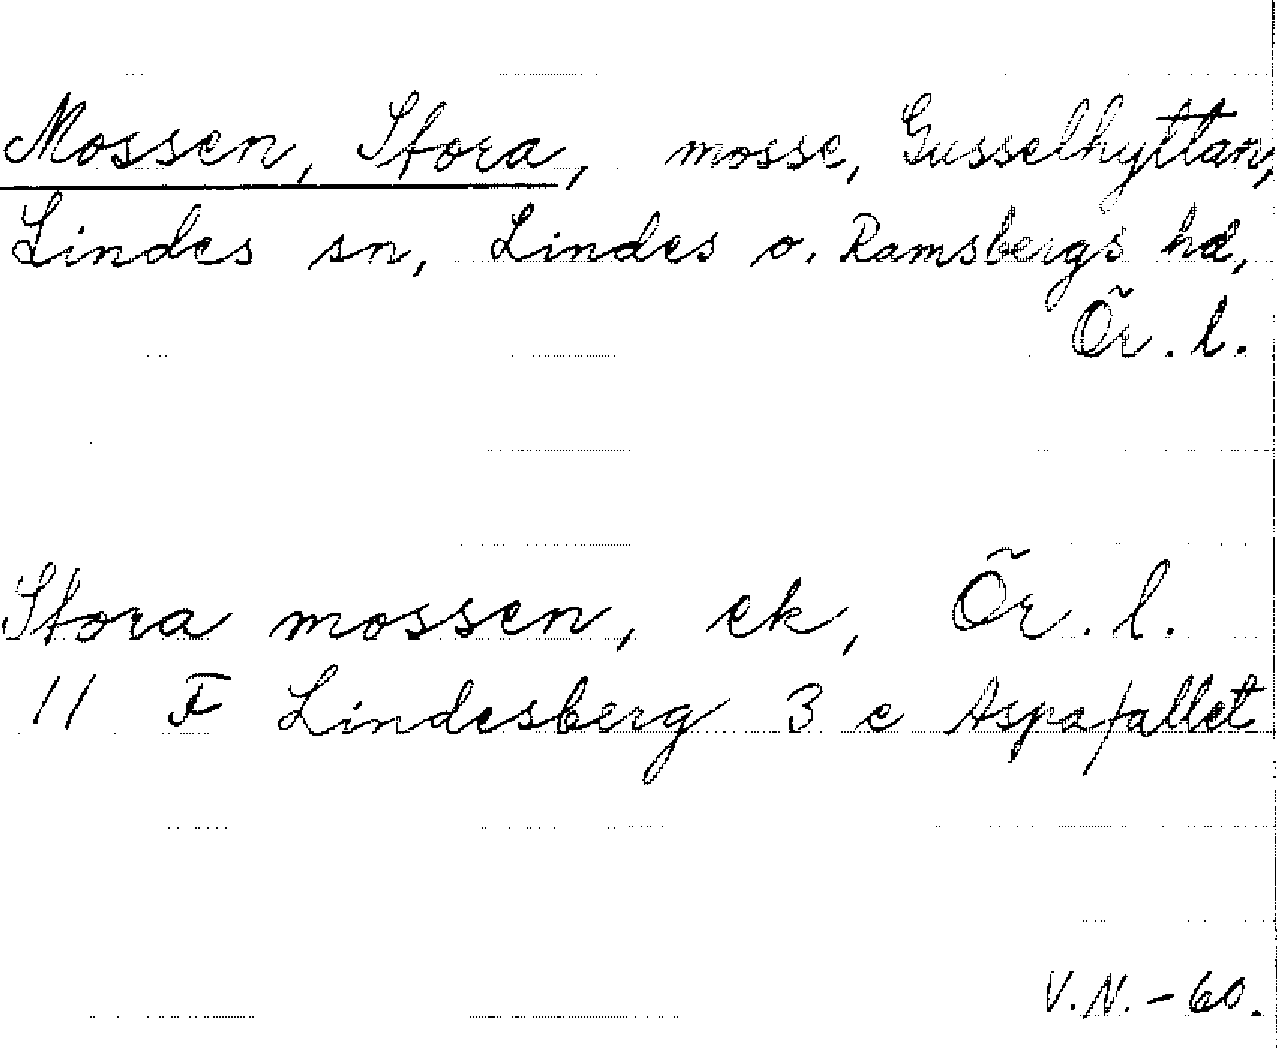 Mossen, Stora, mosse, Gusselhyttan,
Lindes sn, Lindes o. Ramsbergs hd,
Ör. l.
Stora mossen, ek, Ör. l.
11 F Lindesberg 3 e Aspafallet
V.N.-60.